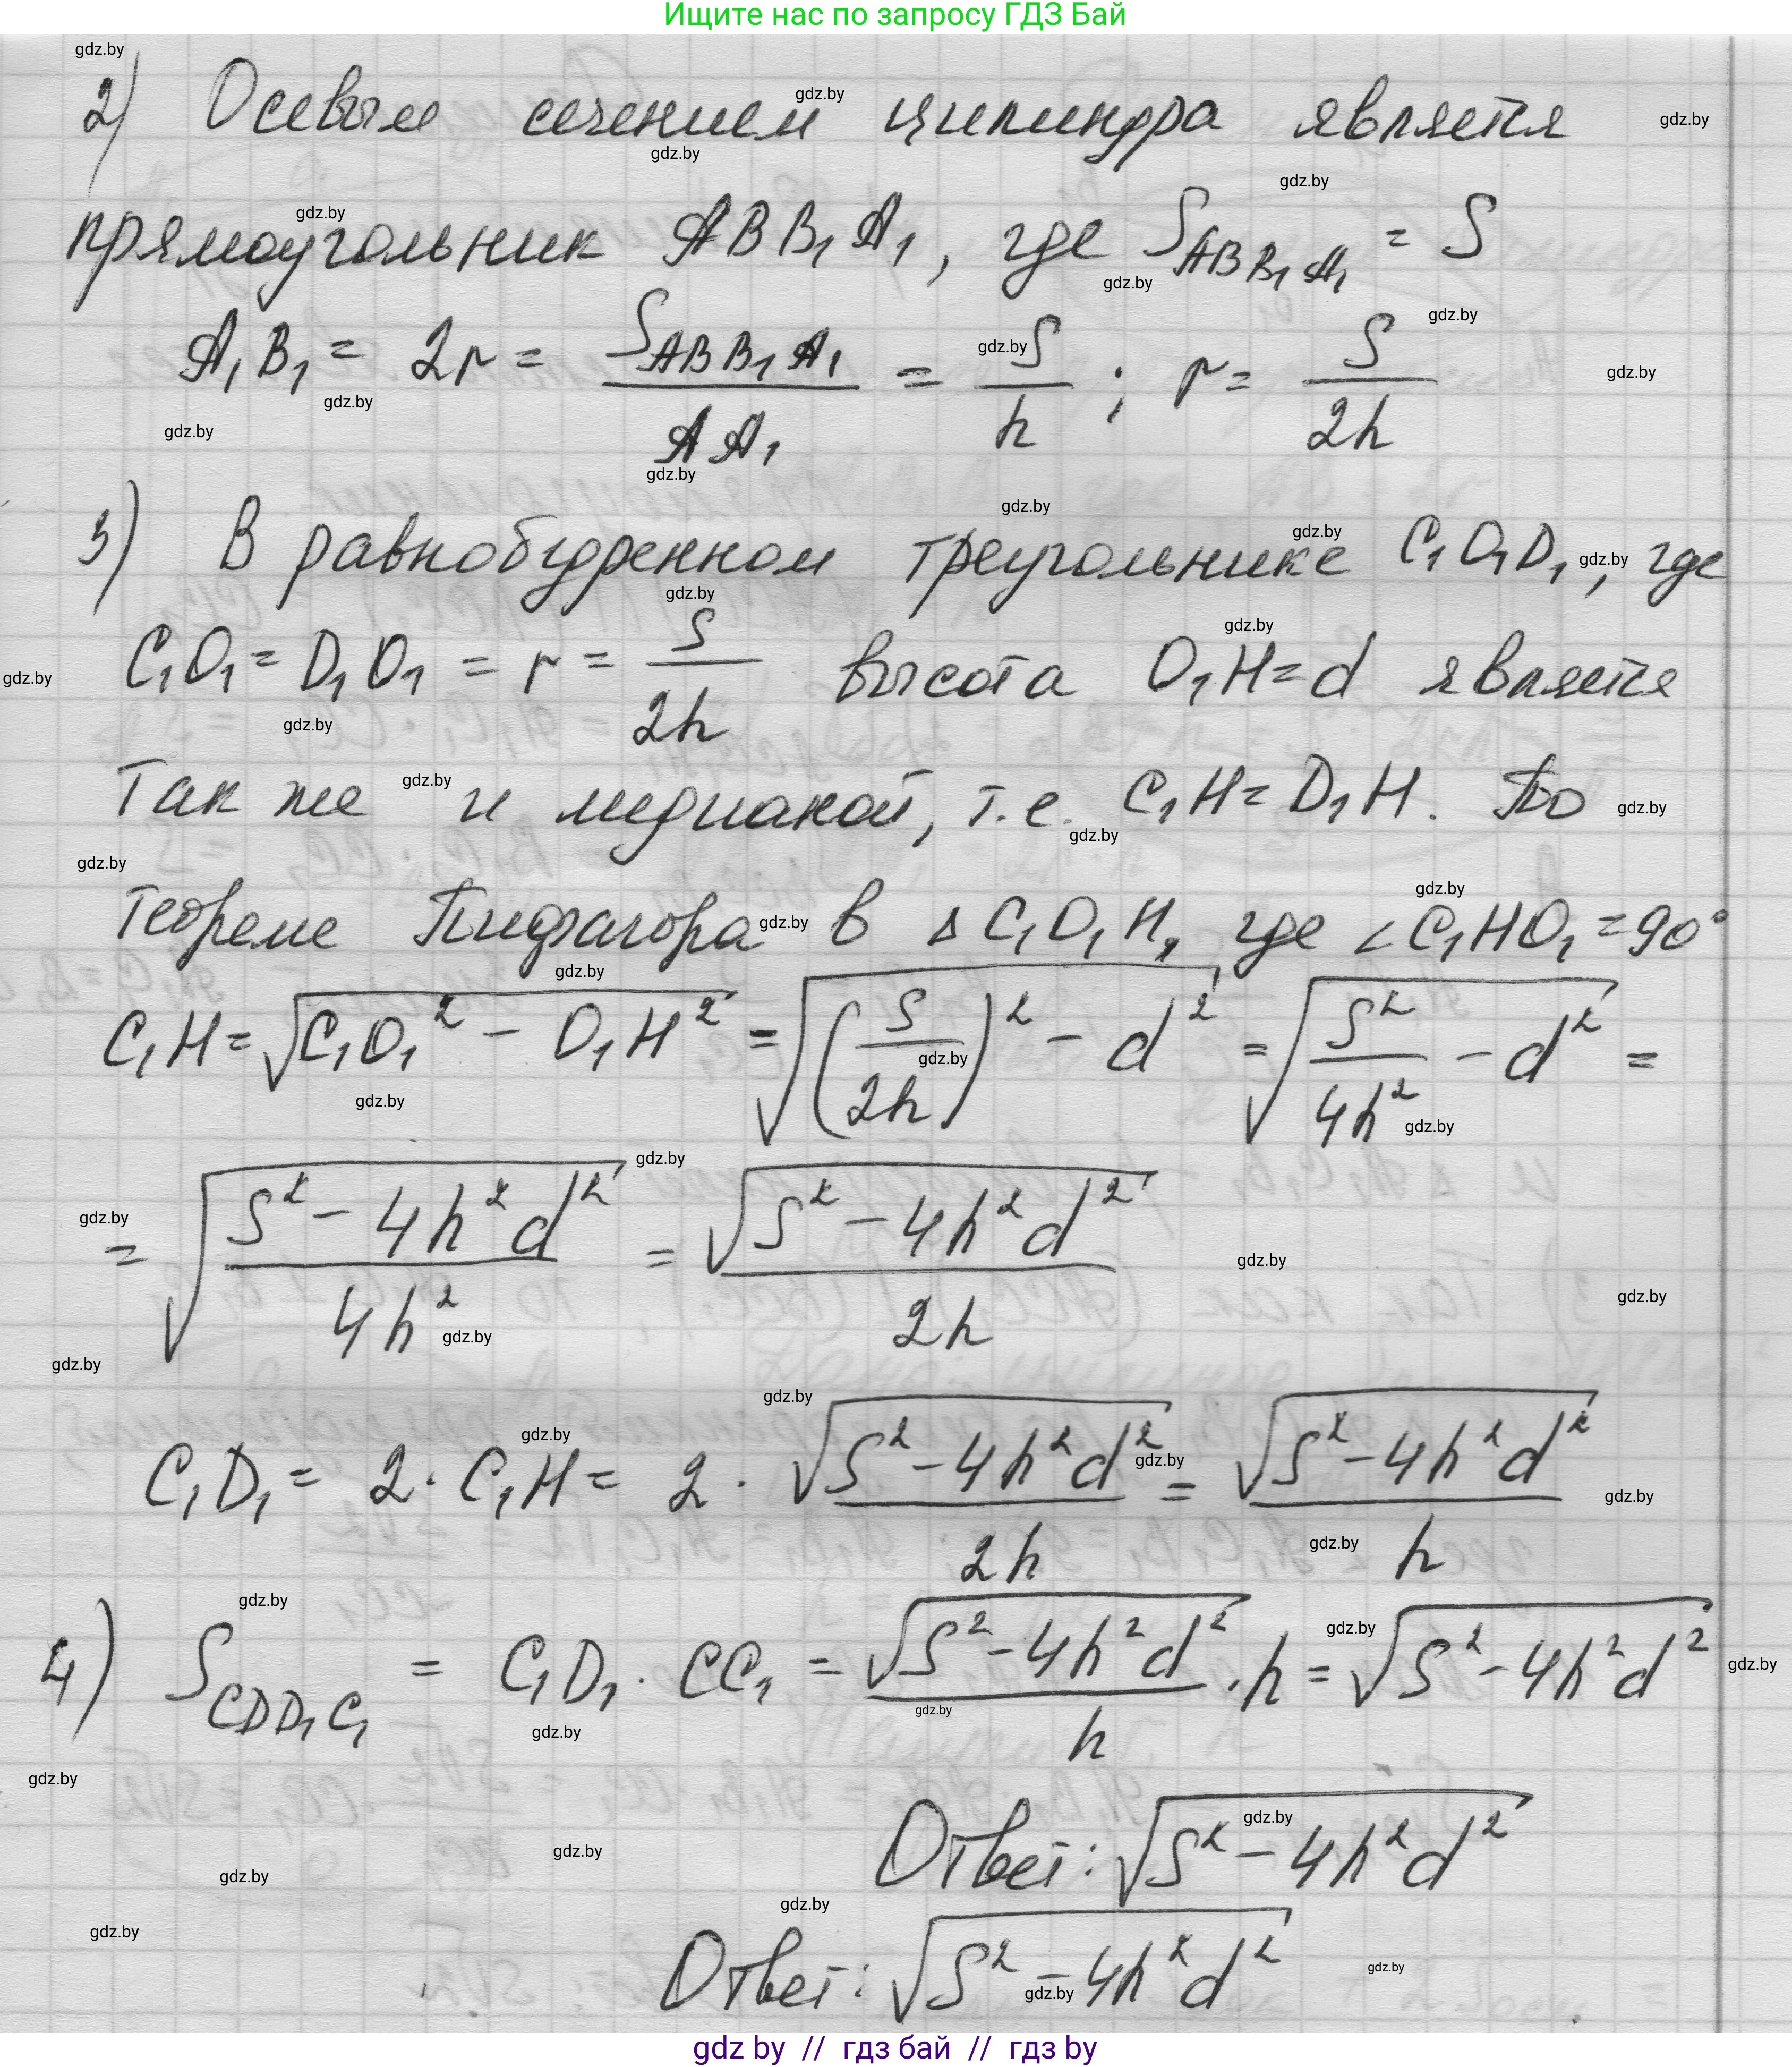 Ищите нас по запросу ГДЗ Бай
2) Осевым сечением цилиндра является
прямоугольник ABB₁A₁, где S_{ABB₁A₁} = S
A₁B₁ = 2r = S_{ABB₁A₁} / AA₁ = S / h ; r = S / 2h
3) В равнобедренном треугольнике C₁O₁D₁, где
C₁O₁ = D₁O₁ = r = S / 2h высота O₁H = d является
так же и медианой, т.е. C₁H = D₁H. По
теореме Пифагора в △C₁O₁H, где ∠C₁HO₁ = 90°
C₁H = √(C₁O₁² − O₁H²) = √((S / 2h)² − d²) = √(S² / 4h² − d²) =
= √((S² − 4h²d²) / 4h²) = √(S² − 4h²d²) / 2h
C₁D₁ = 2 · C₁H = 2 · √(S² − 4h²d²) / 2h = √(S² − 4h²d²) / h
4) S_{CDD₁C₁} = C₁D₁ · CC₁ = √(S² − 4h²d²) / h · h = √(S² − 4h²d²)
Ответ: √(S² − 4h²d²)
Ответ: √(S² − 4h²d²)
gdz by // гдз бай // гдз by